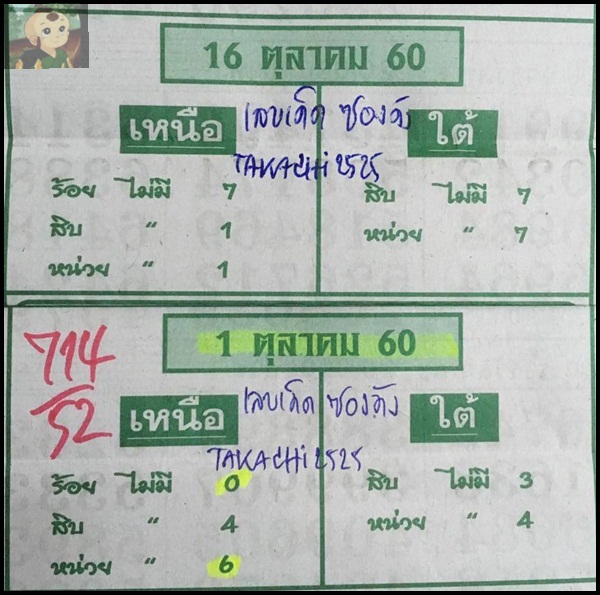 16 ตุลาคม 60
เหนือ
เลขเด็ด ซองดัง
TAKACHi2525
ใต้
ร้อย ไม่มี 7
สิบ " 1
หน่วย " 1
สิบ ไม่มี 7
หน่วย " 7
714
52
1 ตุลาคม 60
เหนือ
เลขเด็ด ซองดัง
TAKACHi2525
ใต้
ร้อย ไม่มี 0
สิบ " 4
หน่วย " 6
สิบ ไม่มี 3
หน่วย " 4